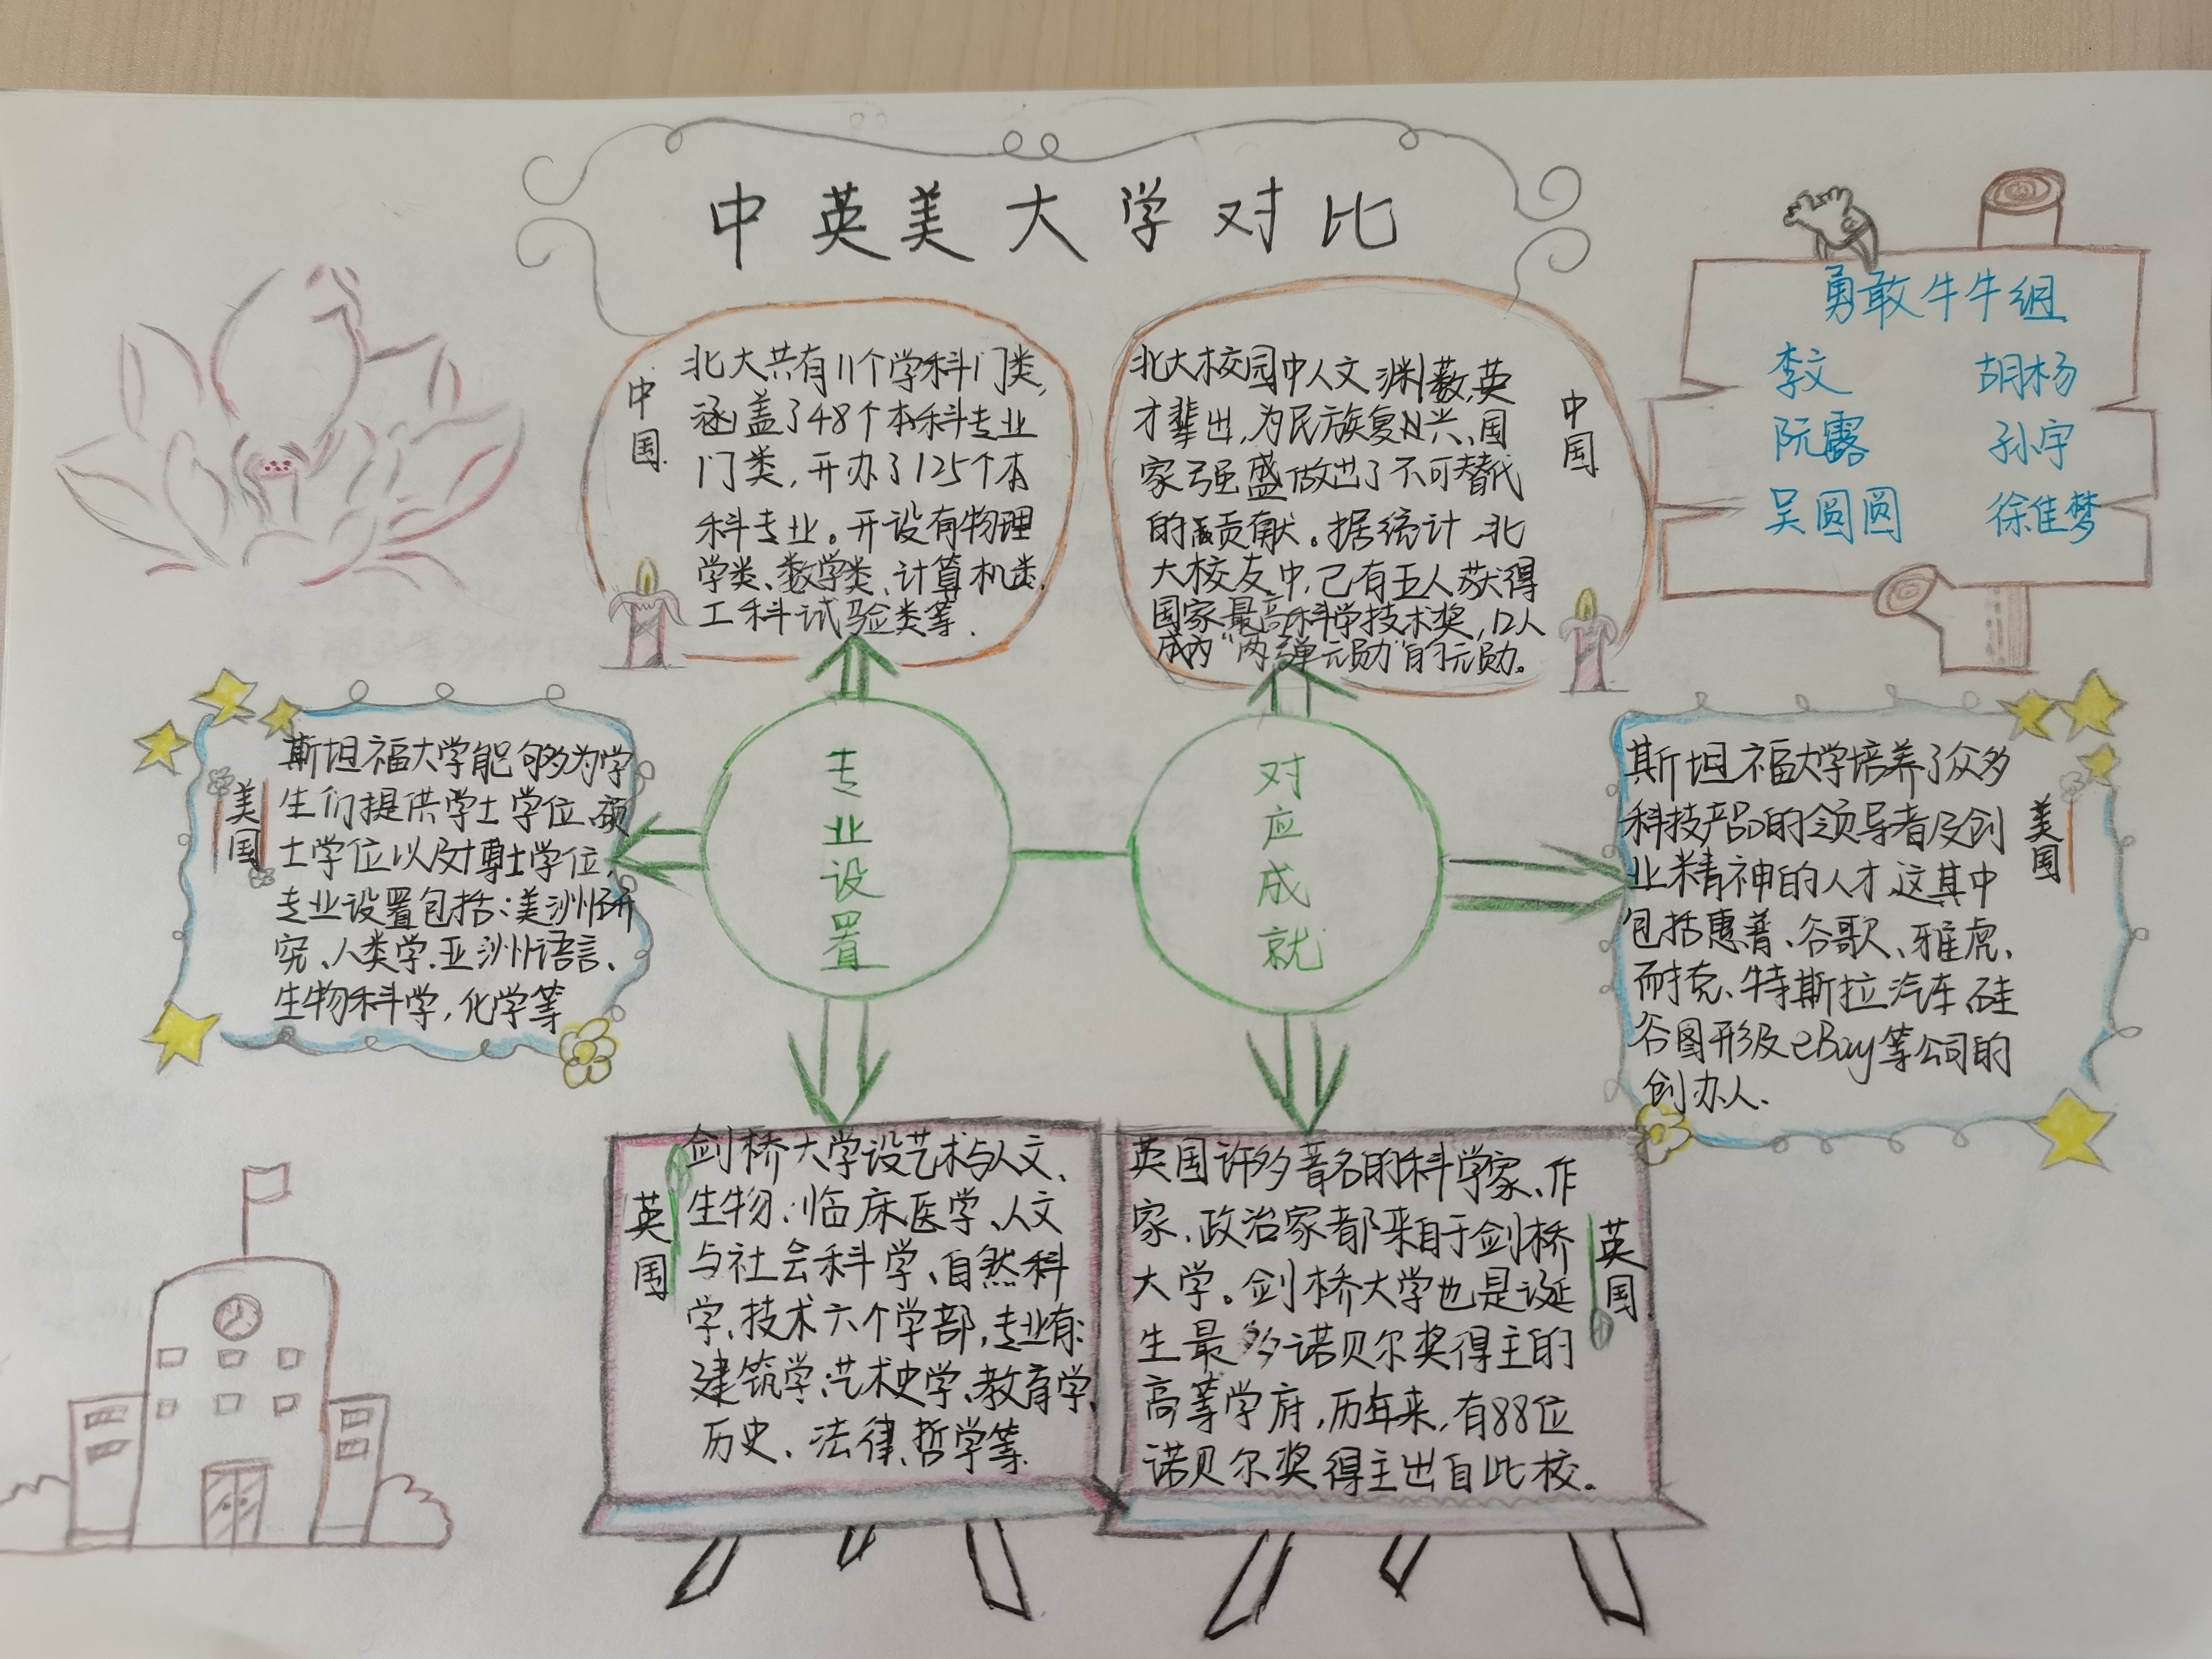 中英美大学对比
勇敢牛牛组
李文 胡杨
阮露 孙宇
吴圆圆 徐佳梦
中国
北大共有11个学科门类,
涵盖了48个本科专业
门类,开办了125个本
科专业。开设有物理
学类、数学类、计算机类、
工科试验类等.
北大校园中人文渊薮,英
才辈出,为民族复兴、国
家强盛做出了不可替代
的贡献。据统计,北
大校友中,已有五人获得
国家最高科学技术奖,12人
成为“两弹元勋”的元勋。
中国
美国
斯坦福大学能够为学
生们提供学士学位、硕
士学位以及博士学位,
专业设置包括:美洲研
究、人类学、亚洲语言、
生物科学,化学等
专业设置
对应成就
斯坦福大学培养了众多
科技产品的领导者及创
业精神的人才,这其中
包括惠普、谷歌、雅虎、
耐克、特斯拉汽车、硅
谷图形及eBay等公司的
创办人.
美国
英国
剑桥大学设艺术与人文、
生物、临床医学、人文
与社会科学、自然科
学、技术六个学部,专业有:
建筑学、艺术史学、教育学、
历史、法律、哲学等.
英国许多著名的科学家、作
家、政治家都来自于剑桥
大学。剑桥大学也是诞
生最多诺贝尔奖得主的
高等学府,历年来,有88位
诺贝尔奖得主出自此校。
英国